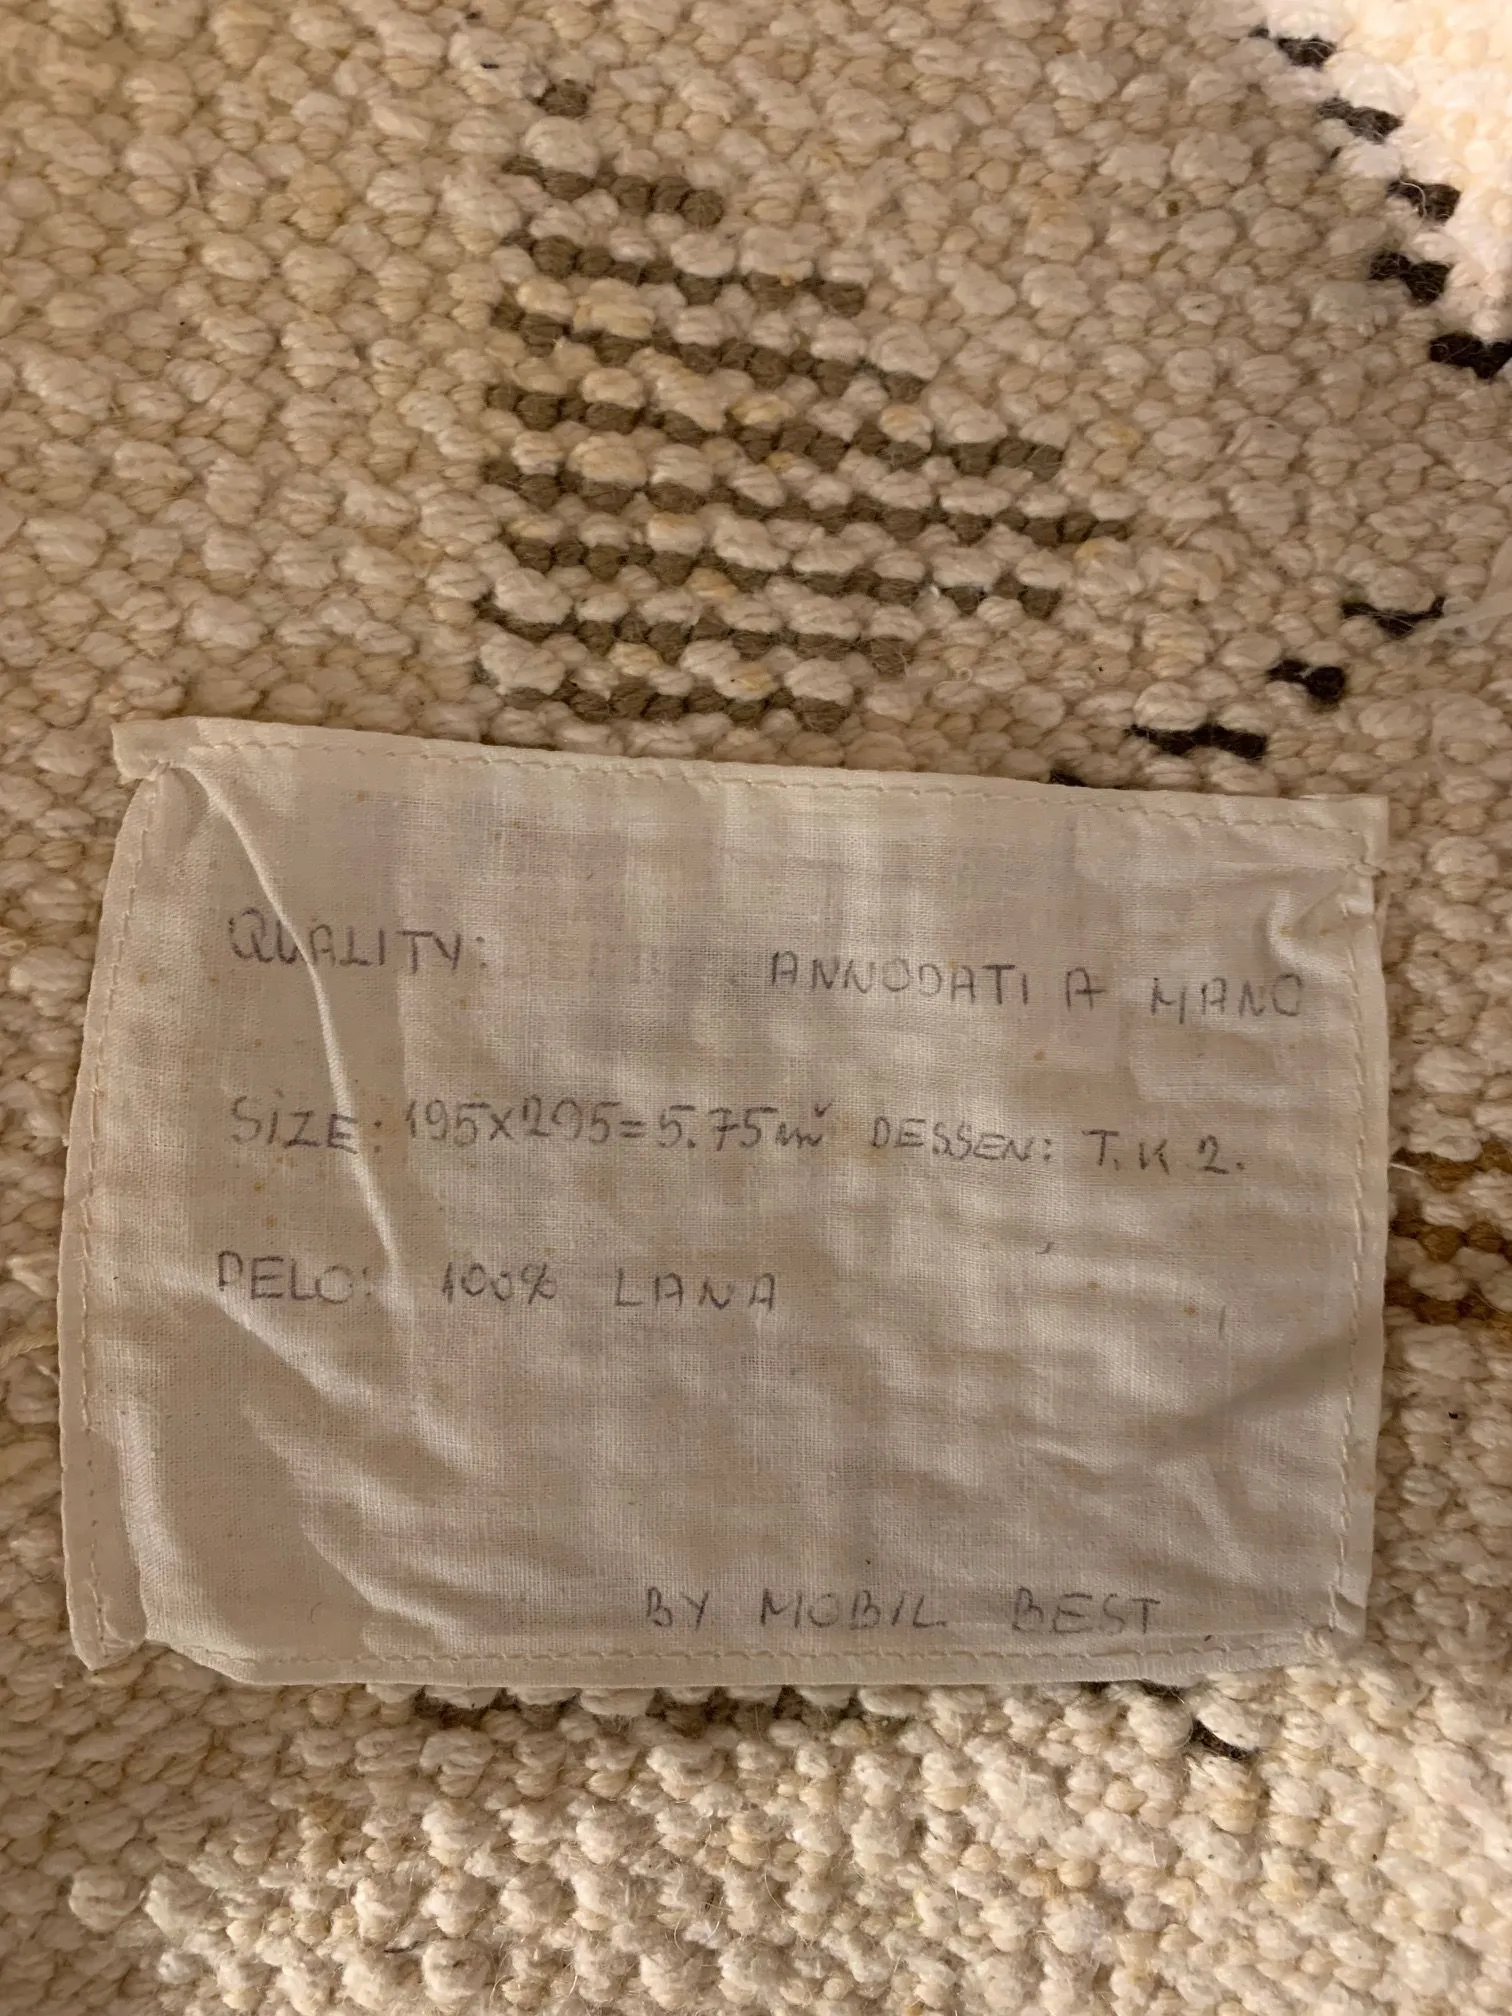 QUALITY: ANNODATI A MANO
SiZE: 195x295=5.75m² DESSEN: T.K 2.
PELO: 100% LANA
BY MOBIL BEST